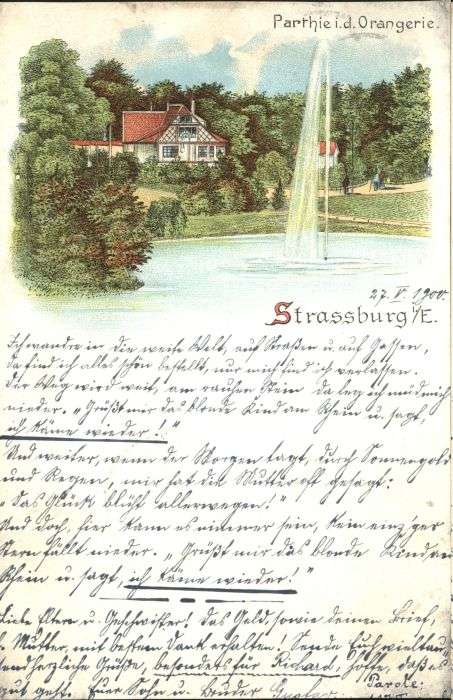 Parthie i.d. Orangerie.
27. V. 1900.
Strassburg i/E.
Ich wandre in die weite Welt, auf Straßen u. auf Gassen,
da find ich alles schön bestellt, nur mich find ich verlassen.
Der Weg wird weit, am rauhen Stein da leg ich müd mich
nieder. „Grüßt mir das blonde Kind am Rhein u. sagt,
ich käme wieder!"
Und weiter, wenn der Morgen tagt, durch Sonnengold
und Regen, mir hat die Mutter oft gesagt:
„Das Glück blüht allerwegen!"
Und doch, hier kann es nimmer sein, kein einz'ger
Stern fällt nieder. „Grüßt mir das blonde Kind am
Rhein u. sagt, ich käme wieder!"
Liebe Eltern u. Geschwister! Das Geld, sowie deinen Brief,
l. Mutter, mit bestem Dank erhalten! Sende Euch vieltau-
sendherzliche Grüße, besonders für Richard, hoffe, daß es
gut geht. Euer Sohn u. Bruder
Parole: